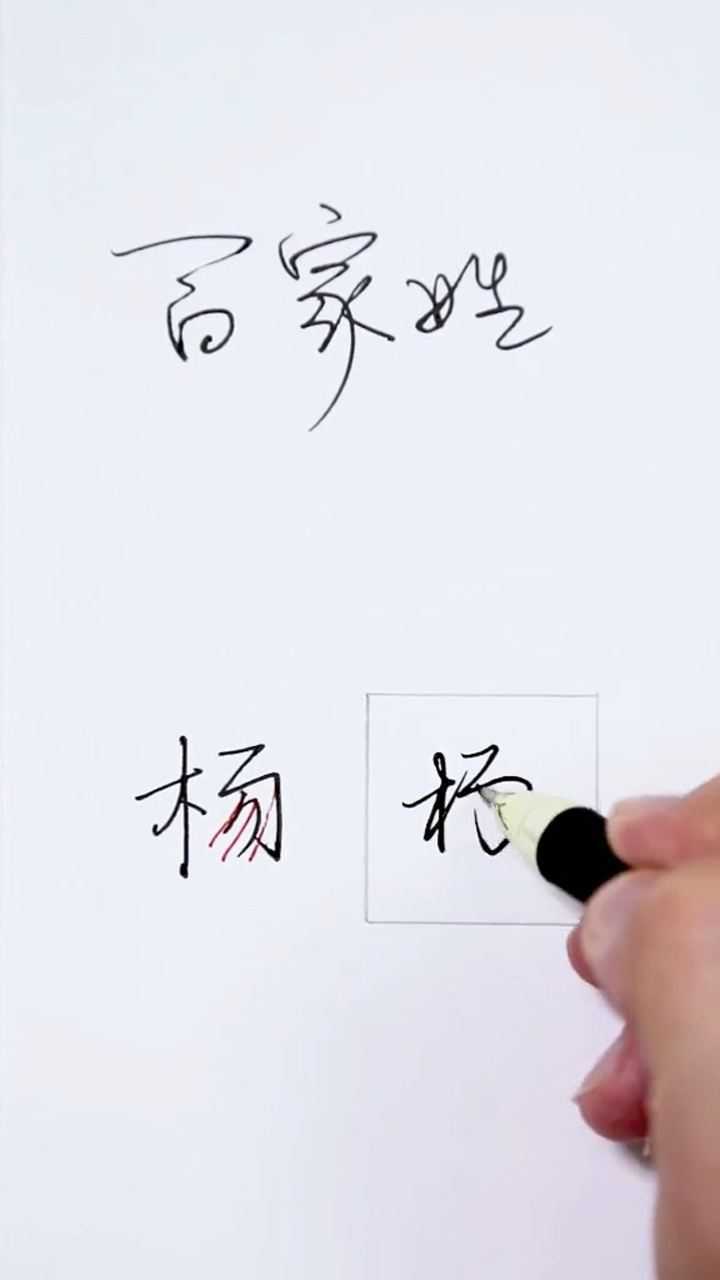 百家姓
杨 杨